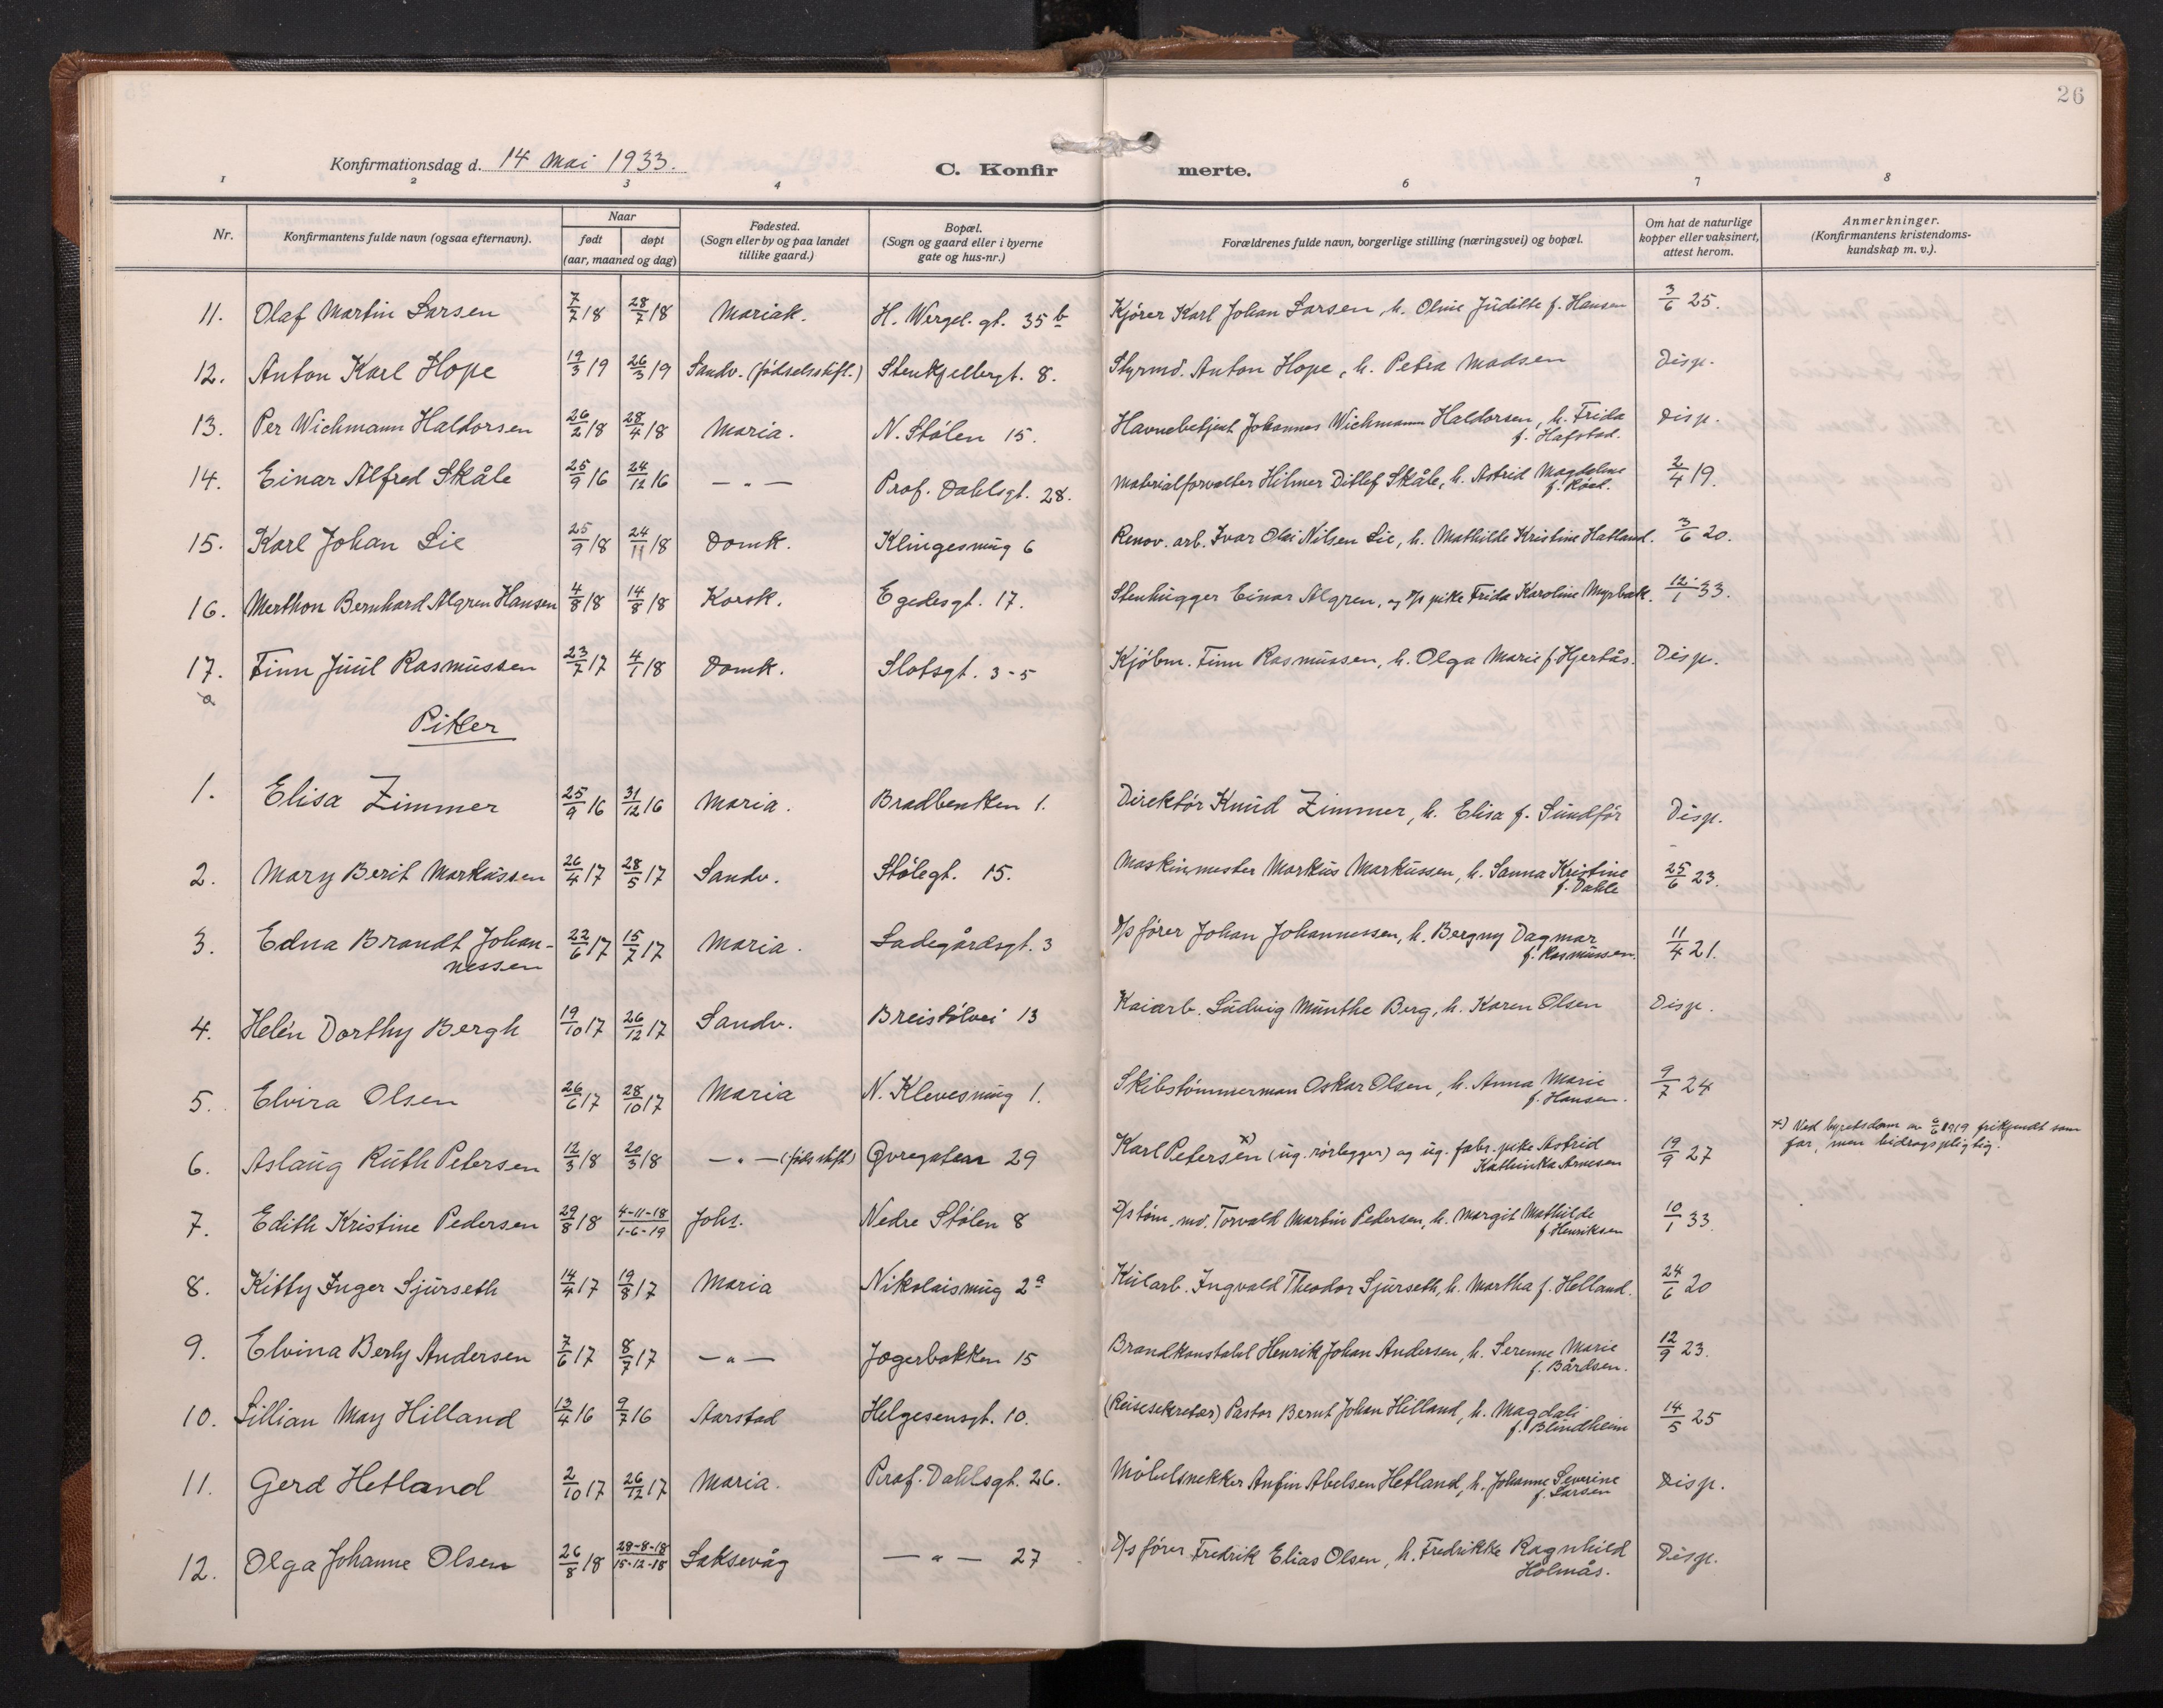 26
Konfirmationsdag d. 14 Mai 1933.
C. Konfirmerte.
1 2 3 4 6 7 8
Nr. Konfirmantens fulde navn (ogsaa efternavn). Naar født døpt (aar, maaned og dag) Fødested. (Sogn eller by og paa landet tillike gaard.) Bopæl. (Sogn og gaard eller i byerne gate og hus-nr.) Forældrenes fulde navn, borgerlige stilling (næringsvei) og bopæl. Om hat de naturlige kopper eller vaksinert, attest herom. Anmerkninger. (Konfirmantens kristendoms-kundskap m. v.).
11. Olaf Martin Larsen 7/7 18 28/7 18 Mariak. H. Wergel. gt. 35 b Kjører Karl Johan Larsen, h. Oline Juditte f. Hansen 3/6 25.
12. Anton Karl Hope 19/3 19 26/3 19 Sandv. (fødselsstift.) Stenkjellergt. 8. Styrmd. Anton Hope, h. Petra Madsen Disp.
13. Per Wichmann Haldorsen 26/2 18 28/4 18 Maria. N. Stølen 15. Havnebetjent Johannes Wichmann Haldorsen, h. Frida f. Hafstad. Disp.
14. Einar Alfred Skåle 25/9 16 24/12 16 — " — Prof. Dahlsgt. 28. Materialforvalter Hilmer Ditlef Skåle, h. Astrid Magdalene f. 2/4 19.
15. Karl Johan Lie 25/9 18 24/11 18 Domk. Klingesmug 6 Renov. arb. Ivar Olai Nilsen Lie, h. Mathilde Kristine Hatland. 3/6 20.
16. Merthon Bernhard Algren Hansen 4/8 18 14/8 18 Korsk. Egedesgt. 17. Stenhugger Einar Algren, og pike Frida Karoline Myrbak. 12/1 33.
17. Finn Juul Rasmussen 23/7 17 4/1 18 Domk. Slotsgt. 3-5 Kjøbm. Finn Rasmussen, h. Olga Marie f. Hjertås. Disp.
a
Piker
1. Elisa Zimmer 25/9 16 31/12 16 Maria. Bradbenken 1. Direktør Knud Zimmer, h. Elisa f. Sundför Disp.
2. Mary Berit Markussen 26/4 17 28/5 17 Sandv. Stølegt. 15. Maskinmester Markus Markussen, h. Sanna Kristine f. Dahle 25/6 23.
3. Edna Brandt Johannessen 22/6 17 15/7 17 Maria. Ladegårdsgt. 3 D/s fører Johan Johannessen, h. Bergny Dagmar f. Rasmussen. 11/4 21.
4. Helén Dorthy Bergh 19/10 17 26/12 17 Sandv. Breistølvei 13 Kaiarb. Ludvig Munthe Berg, h. Karen Olsen Disp.
5. Elvira Olsen 26/6 17 28/10 17 Maria N. Klevesmug 1. Skibstømmerman Oskar Olsen, h. Anna Marie f. Hansen. 9/7 24
6. Aslaug Ruth Petersen 12/3 18 20/3 18 — " — (føds stift) Øvregaten 29 Karl Petersen x) (ug. rørlegger) og ug. fabr. pike Astrid Kathinka Arnesen 19/9 27 x) Ved byretsdom av 6/6 1919 frikjendt som far, men bidragspligtig.
7. Edith Kristine Pedersen 29/8 18 4-11-18 1-6-19 Johs. Nedre Stølen 8 D/s tøm. md. Torvald Martin Pedersen, h. Margit Mathilde f. Henriksen 10/1 33.
8. Kitty Inger Sjurseth 14/4 17 19/8 17 Maria Nikolaismug 2 a Kularb. Ingvald Theodor Sjurseth, h. Martha f. Helland. 24/6 20
9. Elvina Berly Andersen 7/6 17 8/7 17 — " — Jegerbakken 15 Brandkonstabel Henrik Johan Andersen, h. Serenne Marie f. Bårdsen. 12/9 23.
10. Lillian May Hilland 13/4 16 9/7 16 Aarstad Helgesensgt. 10. (Reisesekretær) Pastor Bernt Johan Hilland, h. Magdali f. Blindheim 14/5 25
11. Gerd Hetland 2/10 17 26/12 17 Maria. Prof. Dahlsgt. 26. Møbelsnekker Anfin Abelsen Hetland, h. Johanne Severine f. Larsen Disp.
12. Olga Johanne Olsen 26/8 18 28-8-18 15-12-18 Laksevåg — " — 27 D/s fører Fredrik Elias Olsen, h. Fredrikke Ragnhild Holmås. Disp.